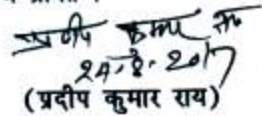 प्रदीप कुमार राय
24.8.2017
(प्रदीप कुमार राय)